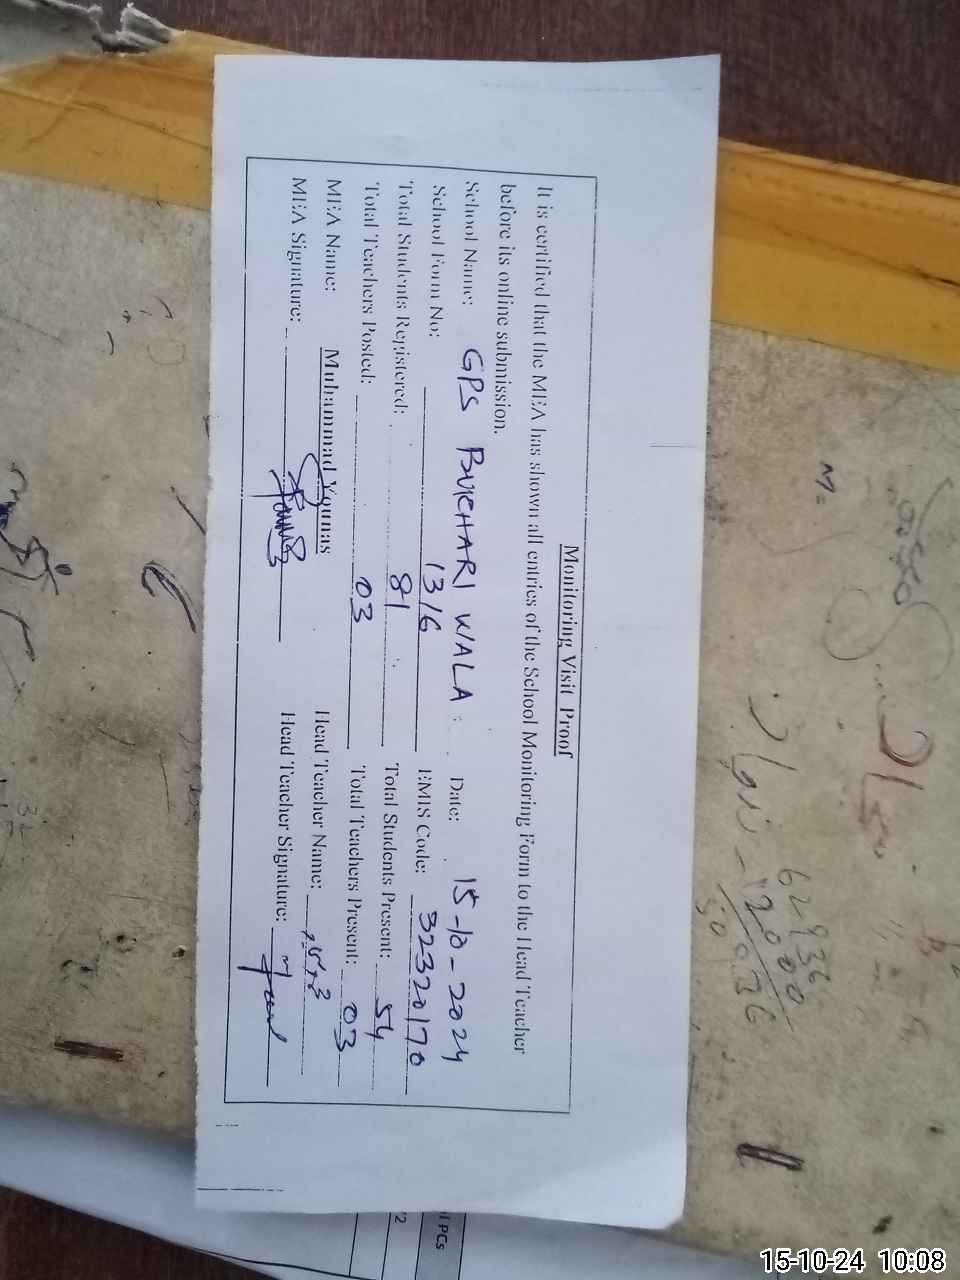 Monitoring Visit Proof
It is certified that the MEA has shown all entries of the School Monitoring Form to the Head Teacher
before its online submission.
School Name: GPS BUKHARI WALA Date: 15-10-2024
School Form No: 1316 EMIS Code: 32320170
Total Students Registered: 81 Total Students Present: 54
Total Teachers Posted: 03 Total Teachers Present: 03
MEA Name: Muhammad Younas Head Teacher Name:
MEA Signature: Head Teacher Signature:
62936
12000
50936
l PCs
15-10-24 10:08